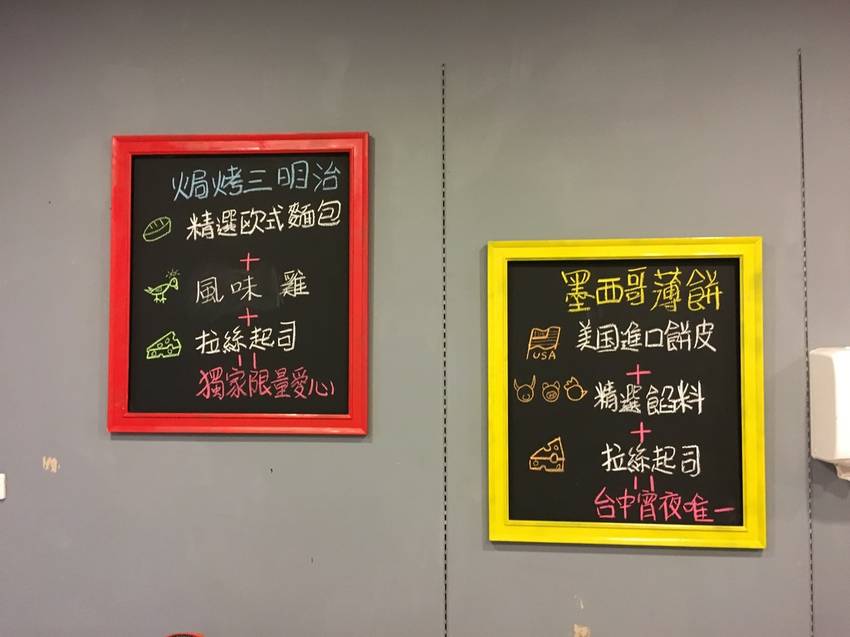 焗烤三明治
精選欧式麵包
+
風味雞
+
拉絲起司
=
獨家限量愛心
墨西哥薄餅
USA
美国進口餅皮
+
精選餡料
+
拉絲起司
=
台中宵夜唯一